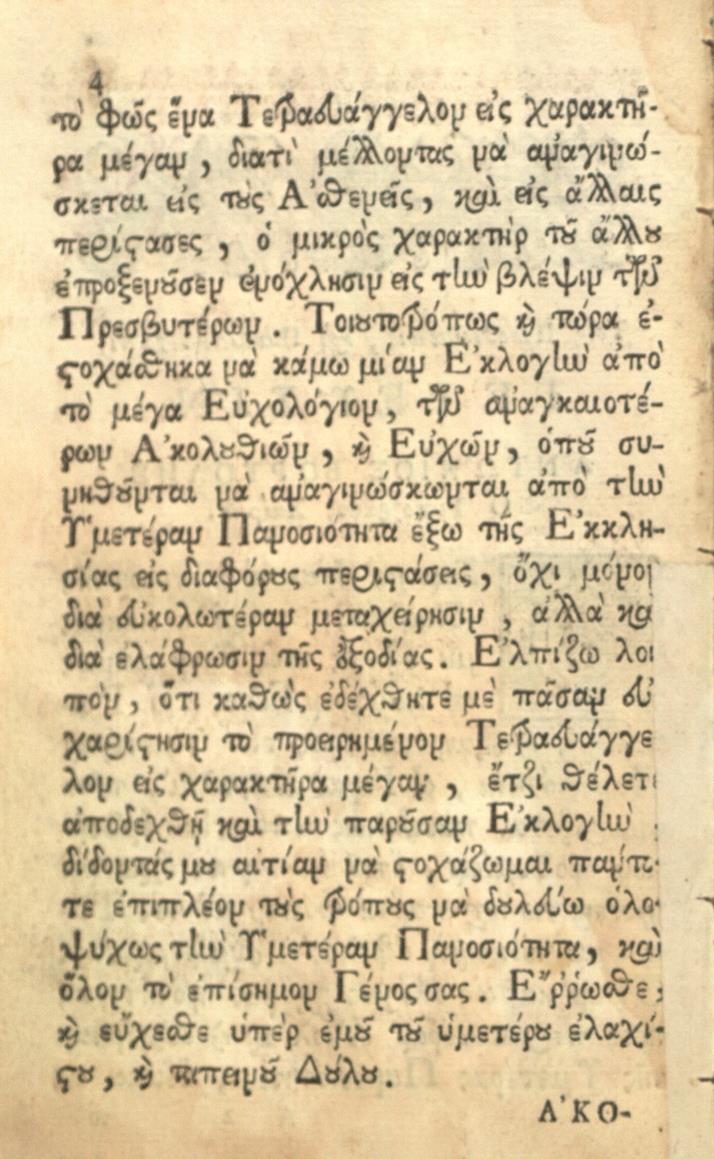 4
τὸ φῶς ἕνα Τετραευάγγελον εἰς χαρακτῆ-
ρα μέγαν, διατὶ μέλλοντας νὰ ἀναγινώ-
σκεται εἰς τοὺς Ἀσθενεῖς, καὶ εἰς ἄλλαις
περίστασες, ὁ μικρὸς χαρακτὴρ τοῦ ἄλλου
ἐπροξενοῦσεν ἐνόχλησιν εἰς τὴν βλέψιν τῶν
Πρεσβυτέρων. Τοιουτοτρόπως καὶ τώρα ἐ-
στοχάσθηκα νὰ κάμω μίαν Ἐκλογὴν ἀπὸ
τὸ μέγα Εὐχολόγιον, τῶν ἀναγκαιοτέ-
ρων Ἀκολουθιῶν, καὶ Εὐχῶν, ὁποῦ συ-
νηθοῦνται νὰ ἀναγινώσκωνται ἀπὸ τὴν
Ὑμετέραν Πανοσιότητα ἔξω τῆς Ἐκκλη-
σίας εἰς διαφόρους περιστάσεις, ὄχι μόνον
διὰ εὐκολωτέραν μεταχείρησιν, ἀλλὰ καὶ
διὰ ἐλάφρωσιν τῆς ἐξοδίας. Ἐλπίζω λοι
πὸν, ὅτι καθὼς ἐδέχθητε μὲ πᾶσαν εὐ
χαρίστησιν τὸ προειρημένον Τετραευάγγε
λον εἰς χαρακτῆρα μέγαν, ἔτζι θέλετε
ἀποδεχθῆ καὶ τὴν παροῦσαν Ἐκλογὴν
δίδοντάς μου αἰτίαν νὰ στοχάζωμαι πάντο-
τε ἐπιπλέον τοὺς τρόπους νὰ δουλεύω ὁλο-
ψύχως τὴν Ὑμετέραν Πανοσιότητα, καὶ
ὅλον τὸ ἐπίσημον Γένος σας. Ἔῤῥωσθε,
καὶ εὔχεσθε ὑπὲρ ἐμοῦ τοῦ ὑμετέρου ἐλαχί-
στου, καὶ ταπεινοῦ Δούλου.
Ἀ ΚΟ-